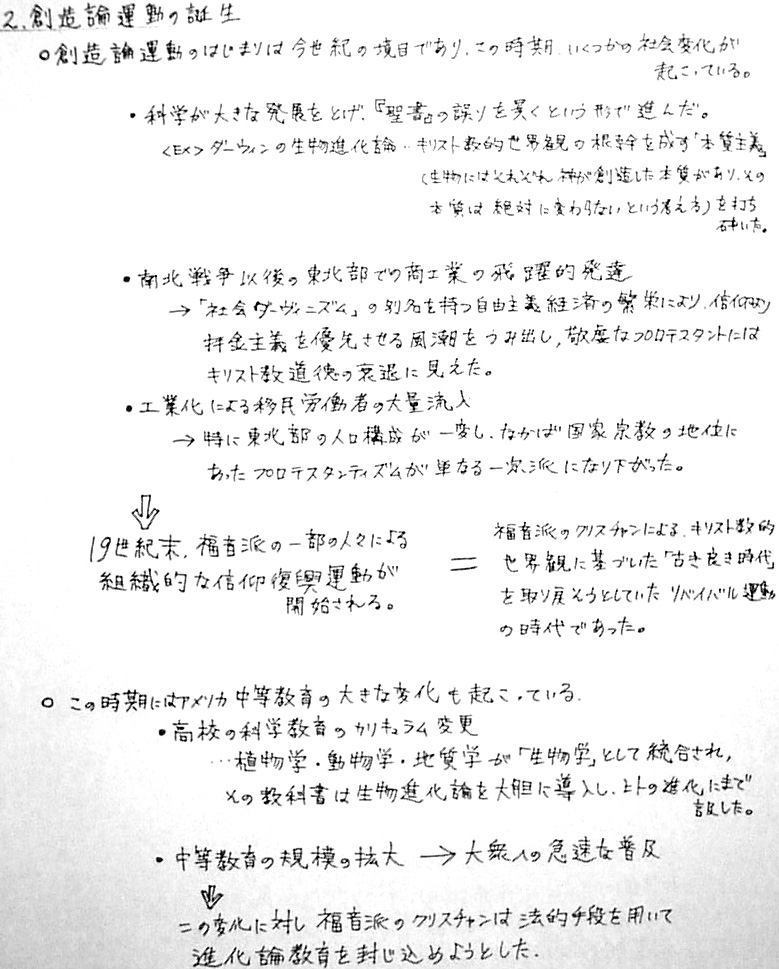 2. 創造論運動の誕生
○創造論運動のはじまりは今世紀の境目であり、この時期、いくつかの社会変化が
起こっている。
・科学が大きな発展をとげ、『聖書』の誤りを暴くという形で進んだ。
<EX> ダーウィンの生物進化論‥キリスト教的世界観の根幹を成す「本質主義」
(生物にはそれぞれ神が創造した本質があり、その
本質は絶対に変わらないという考え方)を打ち
砕いた。
・南北戦争以後の東北部での商工業の飛躍的発達
→「社会ダーヴィニズム」の別名を持つ自由主義経済の繁栄により、信仰より
拝金主義を優先させる風潮をうみ出し、敬虔なプロテスタントには
キリスト教道徳の衰退に見えた。
・工業化による移民労働者の大量流入
→特に東北部の人口構成が一変し、なかば国家宗教の地位に
あったプロテスタンティズムが単なる一宗派になり下がった。
⇓
19世紀末、福音派の一部の人々による
組織的な信仰復興運動が
開始される。
=
福音派のクリスチャンによる、キリスト教的
世界観に基づいた「古き良き時代」
を取り戻そうとしていたリバイバル運動
の時代であった。
○この時期にはアメリカ中等教育の大きな変化も起こっている。
・高校の科学教育のカリキュラム変更
…植物学・動物学・地質学が「生物学」として統合され、
その教科書は生物進化論を大胆に導入し、ヒトの進化にまで
言及した。
・中等教育の規模の拡大 → 大衆への急速な普及
⇓
この変化に対し福音派のクリスチャンは法的手段を用いて
進化論教育を封じ込めようとした.